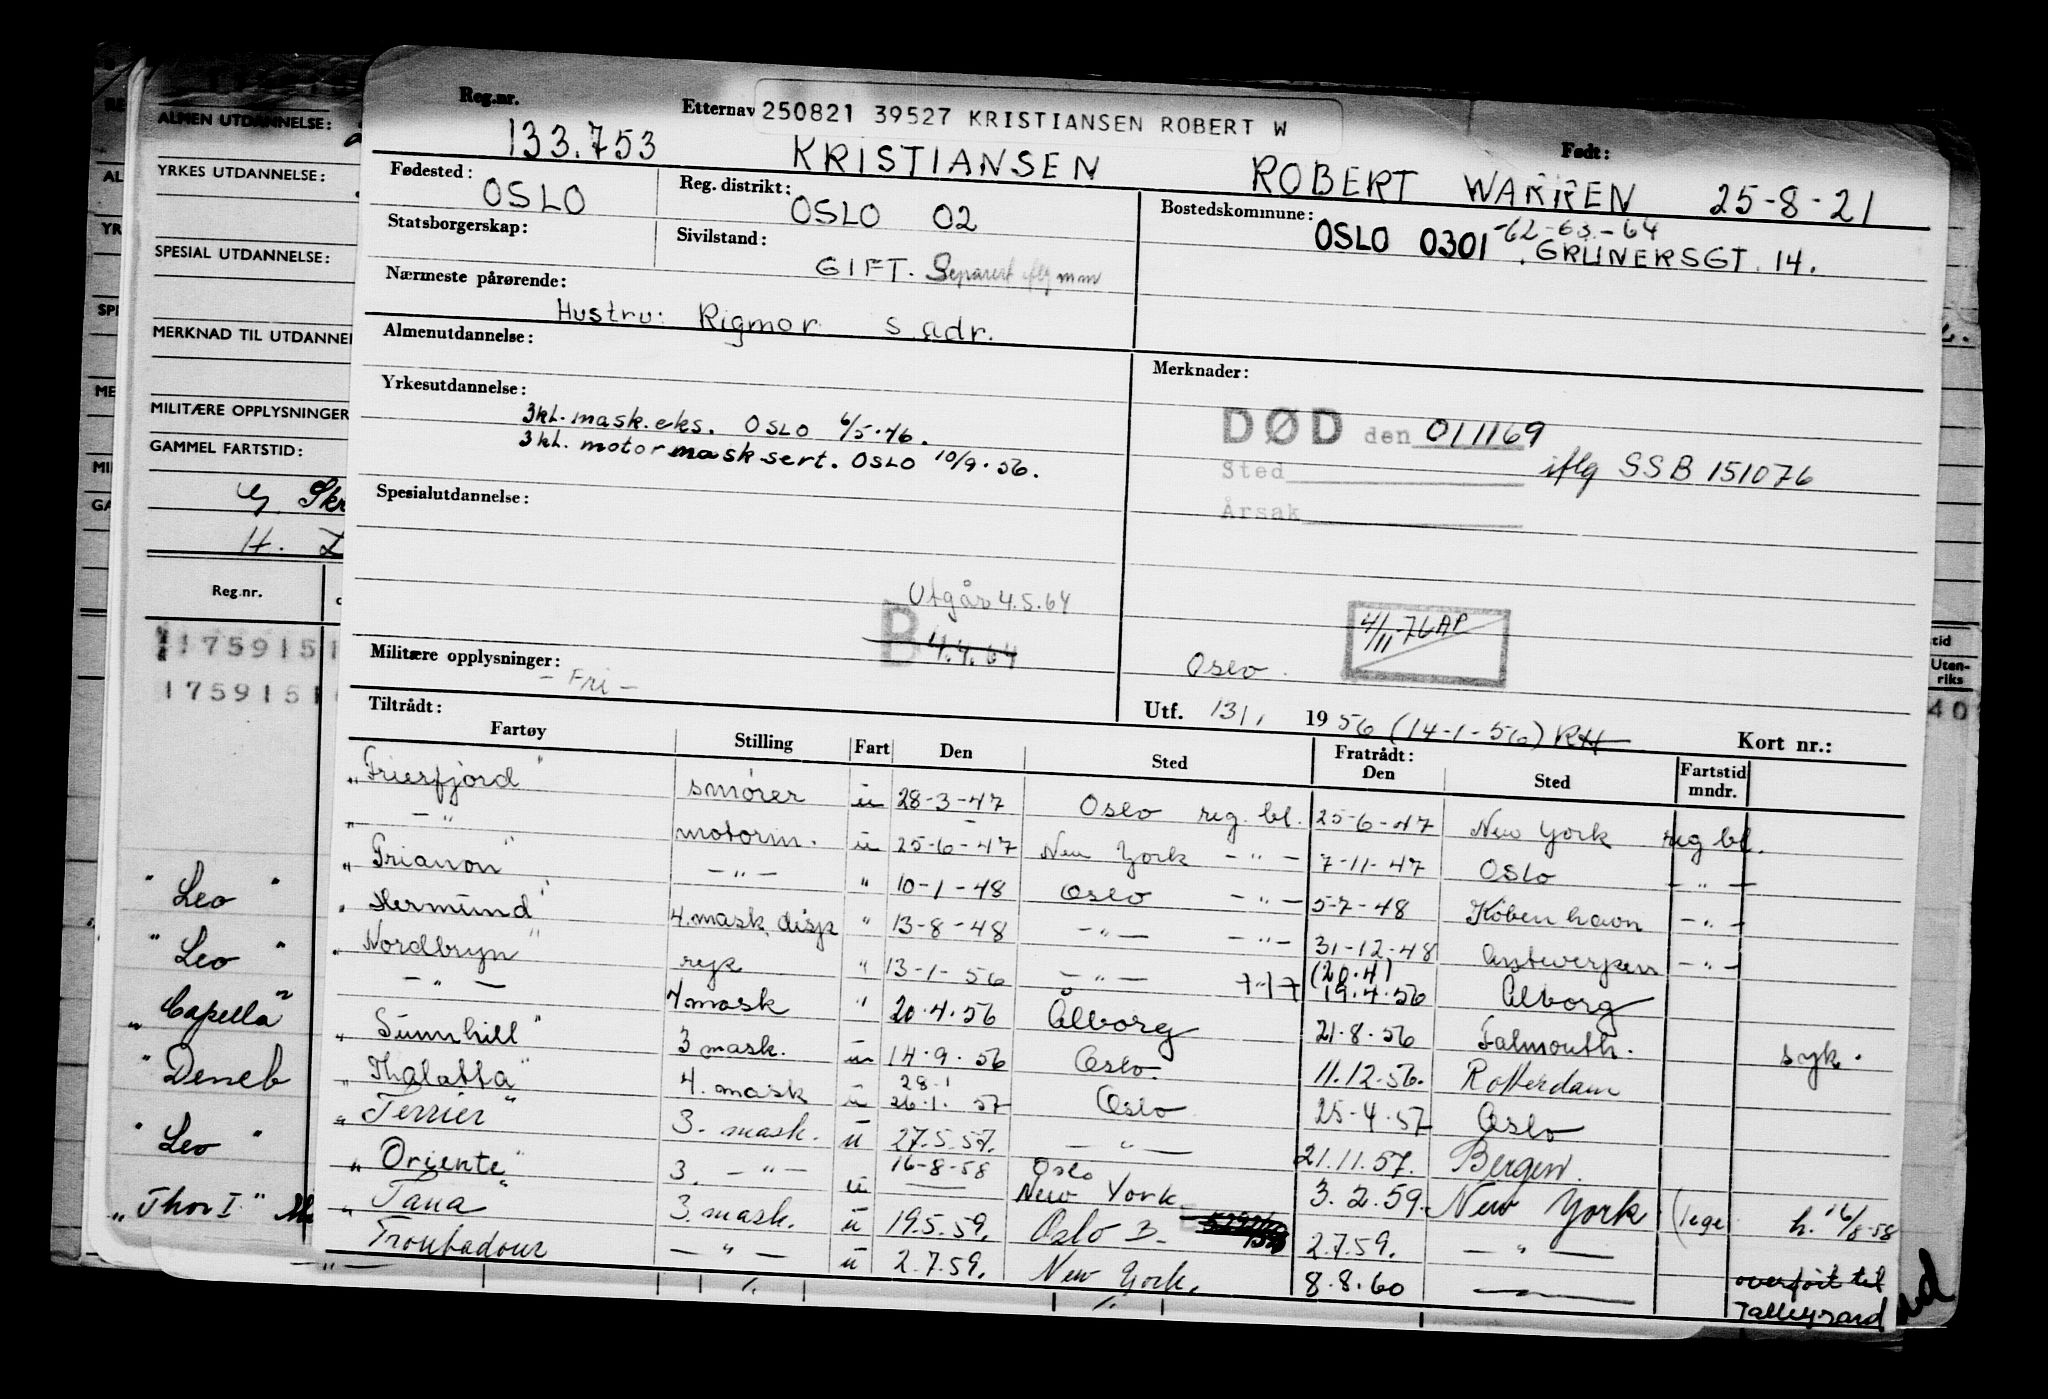 Reg.nr. Etternav 250821 39527 KRISTIANSEN ROBERT W Født:
133.753 KRISTIANSEN ROBERT WARREN 25-8-21
Fødested: OSLO Reg. distrikt: OSLO 02 Bostedskommune: OSLO 0301 -62-63-64 GRUNERSGT. 14.
Statsborgerskap: Sivilstand: GIFT. Separert iflg mm
Nærmeste pårørende: Hustru: Rigmor s adr.
Almenutdannelse: Merknader:
Yrkesutdannelse:
3kl. mask.eks. OSLO 6/5.46.
3kl. motormasksert. OSLO 10/9.56.
DØD den 011169
Sted iflg SSB 151076
Årsak
Spesialutdannelse:
Utgår 4.5.64
B 4.4.64
4/11-76 AP
Militære opplysninger: - Fri - Oslo.
Utf. 13/1 1956 (14-1-56) RH Kort nr.:
Tiltrådt: Fratrådt:
Fartøy Stilling Fart Den Sted Den Sted Fartstid mndr.
"Frierfjord" smører u 28-3-47 Oslo reg. bl. 25-6-47 New York reg bl.
" - " - motorm. u 25-6-47 New York - " - 7-11-47 Oslo - " -
"Trianon" - " - " 10-1-48 Oslo - " - 5-7-48 Köbenhavn - " -
"Hermund" 4.mask.disp " 13-8-48 - " - - " - 31-12-48 Antwerpen - " -
"Nordbryn" rep " 13-1-56 - " - 7-17 (20.4) 19.4.56 Ålborg
- " - 4mask " 20.4.56 Ålborg 21.8.56 Falmouth. syk.
"Sunnhill" 3 mask. u 14.9.56 Oslo. 11.12.56. Rotterdam
"Thalatta" 4. mask u 28.1 26.1.57 Oslo 25-4.57 Oslo
"Terrier" 3. mask. u 27.5.57. - " - 21.11.57. Bergen.
"Oriente" 3. - " - u 16-8-58 Oslo New York 3.2.59. New York (lege h. 16/8-58
"Tana" 3.mask. u 19.5.59. Oslo B. 2.7.59. - " -
Troubadour - " - u 2.7.59. New York. 8.8.60 overført til Talleyrand
ALMEN UTDANNELSE:
YRKES UTDANNELSE:
SPESIAL UTDANNELSE:
MERKNAD TIL UTDANNE
MILITÆRE OPPLYSNINGER
GAMMEL FARTSTID:
H.
Reg.nr.
1759151
1759151
"Leo"
"Leo"
"Capella"
"Deneb
"Leo"
"Thor I"
- " -
tid
Uten-
riks
40